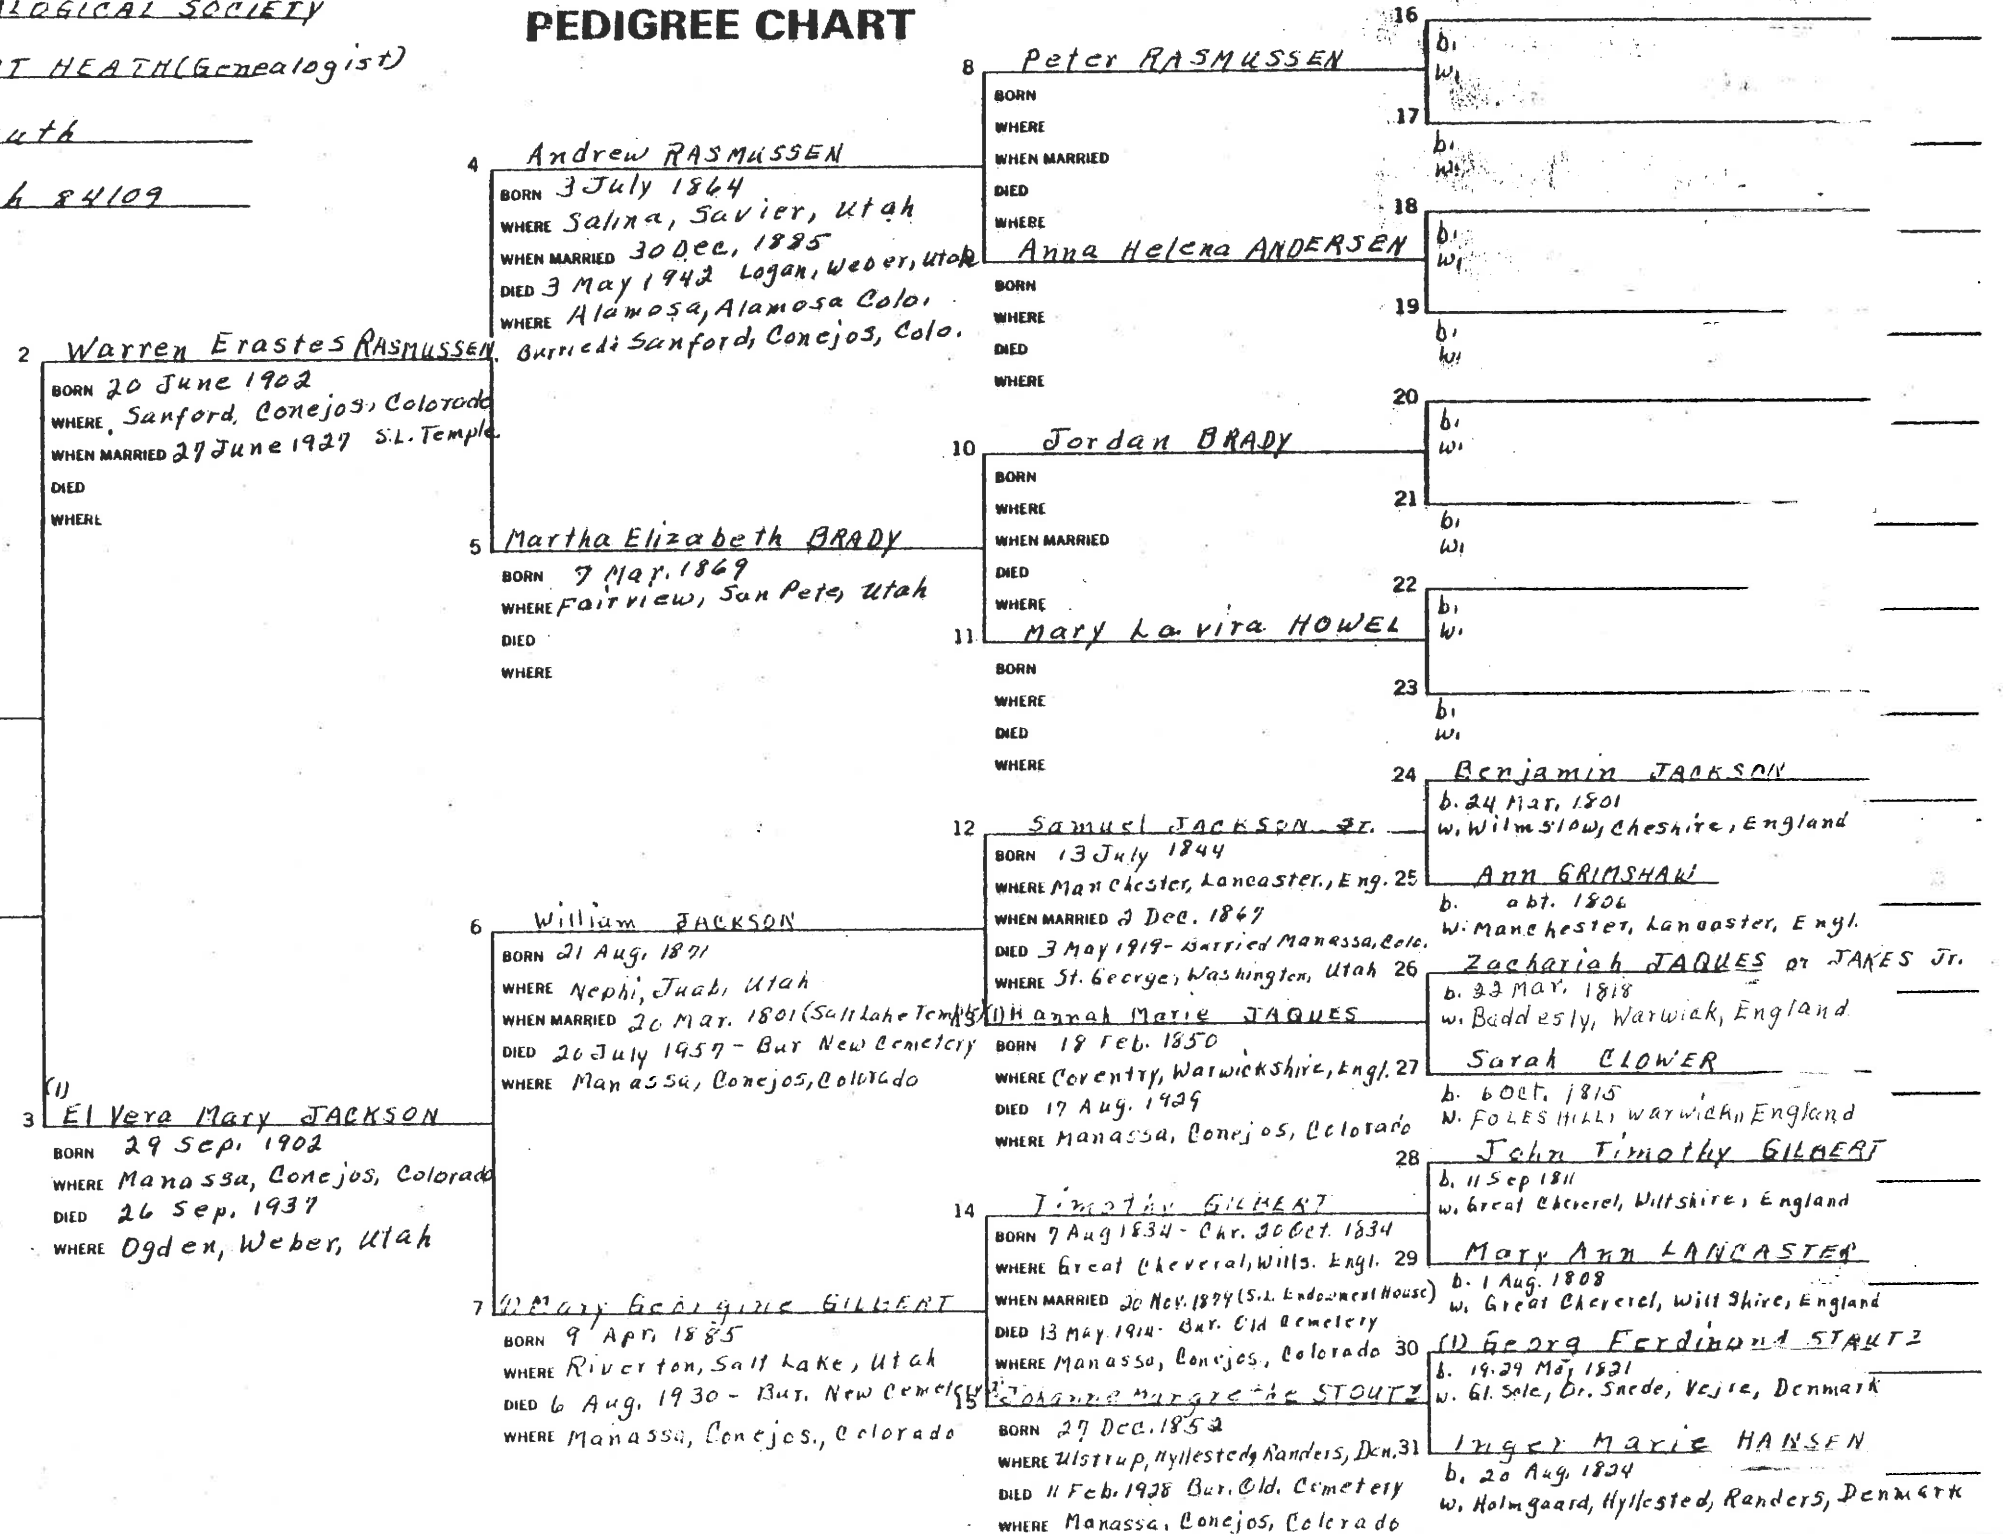 ALOGICAL SOCIETY
PEDIGREE CHART
T HEATH (Genealogist)
uth
h 84109
2 Warren Erastes RASMUSSEN
BORN 20 June 1902
WHERE Sanford, Conejos, Colorado
WHEN MARRIED 27 June 1927 S.L. Temple
DIED
WHERE
(1)
3 El Vera Mary JACKSON
BORN 29 Sep. 1902
WHERE Manassa, Conejos, Colorado
DIED 26 Sep. 1937
WHERE Ogden, Weber, Utah
4 Andrew RASMUSSEN
BORN 3 July 1864
WHERE Salina, Savier, Utah
WHEN MARRIED 30 Dec, 1885
DIED 3 May 1942 Logan, Weber, Utah
WHERE Alamosa, Alamosa Colo.
Burried: Sanford, Conejos, Colo.
5 Martha Elizabeth BRADY
BORN 7 Mar. 1869
WHERE Fairview, San Pete, Utah
DIED
WHERE
6 William JACKSON
BORN 21 Aug. 1871
WHERE Nephi, Juab, Utah
WHEN MARRIED 20 Mar. 1801 (Salt Lake Temple)
DIED 20 July 1957 - Bur New Cemetery
WHERE Manassa, Conejos, Colorado
7 (1) Mary Georgine GILBERT
BORN 9 Apr. 1885
WHERE Riverton, Salt Lake, Utah
DIED 6 Aug. 1930 - Bur. New Cemetery
WHERE Manassa, Conejos., Colorado
8 Peter RASMUSSEN
BORN
WHERE
WHEN MARRIED
DIED
WHERE
9 Anna Helena ANDERSEN
BORN
WHERE
DIED
WHERE
10 Jordan BRADY
BORN
WHERE
WHEN MARRIED
DIED
WHERE
11 Mary La vira HOWEL
BORN
WHERE
DIED
WHERE
12 Samuel JACKSON Jr.
BORN 13 July 1844
WHERE Manchester, Lancaster., Eng.
WHEN MARRIED 2 Dec. 1867
DIED 3 May 1919 - Burried Manassa, Colo.
WHERE St. George, Washington, Utah
13 (1) Hannah Marie JAQUES
BORN 18 Feb. 1850
WHERE Coventry, Warwickshire, Engl.
DIED 17 Aug. 1929
WHERE Manassa, Conejos, Colorado
14 Timothy GILBERT
BORN 7 Aug 1834 - Chr. 20 Oct. 1834
WHERE Great Cheveral, Wilts. Engl.
WHEN MARRIED 20 Nov. 1874 (S.L. Endowment House)
DIED 13 May 1914 - Bur. Old Cemetery
WHERE Manassa, Conejos, Colorado
15 Johanne Margrethe STOUTZ
BORN 27 Dec. 1852
WHERE Ulstrup, Hyllested, Randers, Den.
DIED 11 Feb. 1928 Bur. Old. Cemetery
WHERE Manassa, Conejos, Colorado
16
b.
w.
17
b.
w.
18
b.
w.
19
b.
w.
20
b.
w.
21
b.
w.
22
b.
w.
23
b.
w.
24 Benjamin JACKSON
b. 24 Mar. 1801
w. Wilmslow, Cheshire, England
25 Ann GRIMSHAW
b. abt. 1806
w. Manchester, Lancaster, Engl.
26 Zachariah JAQUES or JAKES Jr.
b. 22 Mar. 1818
w. Baddesly, Warwick, England
27 Sarah CLOWER
b. 6 Oct. 1815
W. FOLESHILL, Warwick, England
28 John Timothy GILBERT
b. 11 Sep 1811
w. Great Cheverel, Wiltshire, England
29 Mary Ann LANCASTER
b. 1 Aug. 1808
w. Great Cheverel, Wilt Shire, England
30 (1) Georg Ferdinand STAUTZ
b. 19.29 Maj 1821
w. Gl. Sole, Dr. Snede, Vejre, Denmark
31 Inger Marie HANSEN
b. 20 Aug. 1824
w. Holmgaard, Hyllested, Randers, Denmark